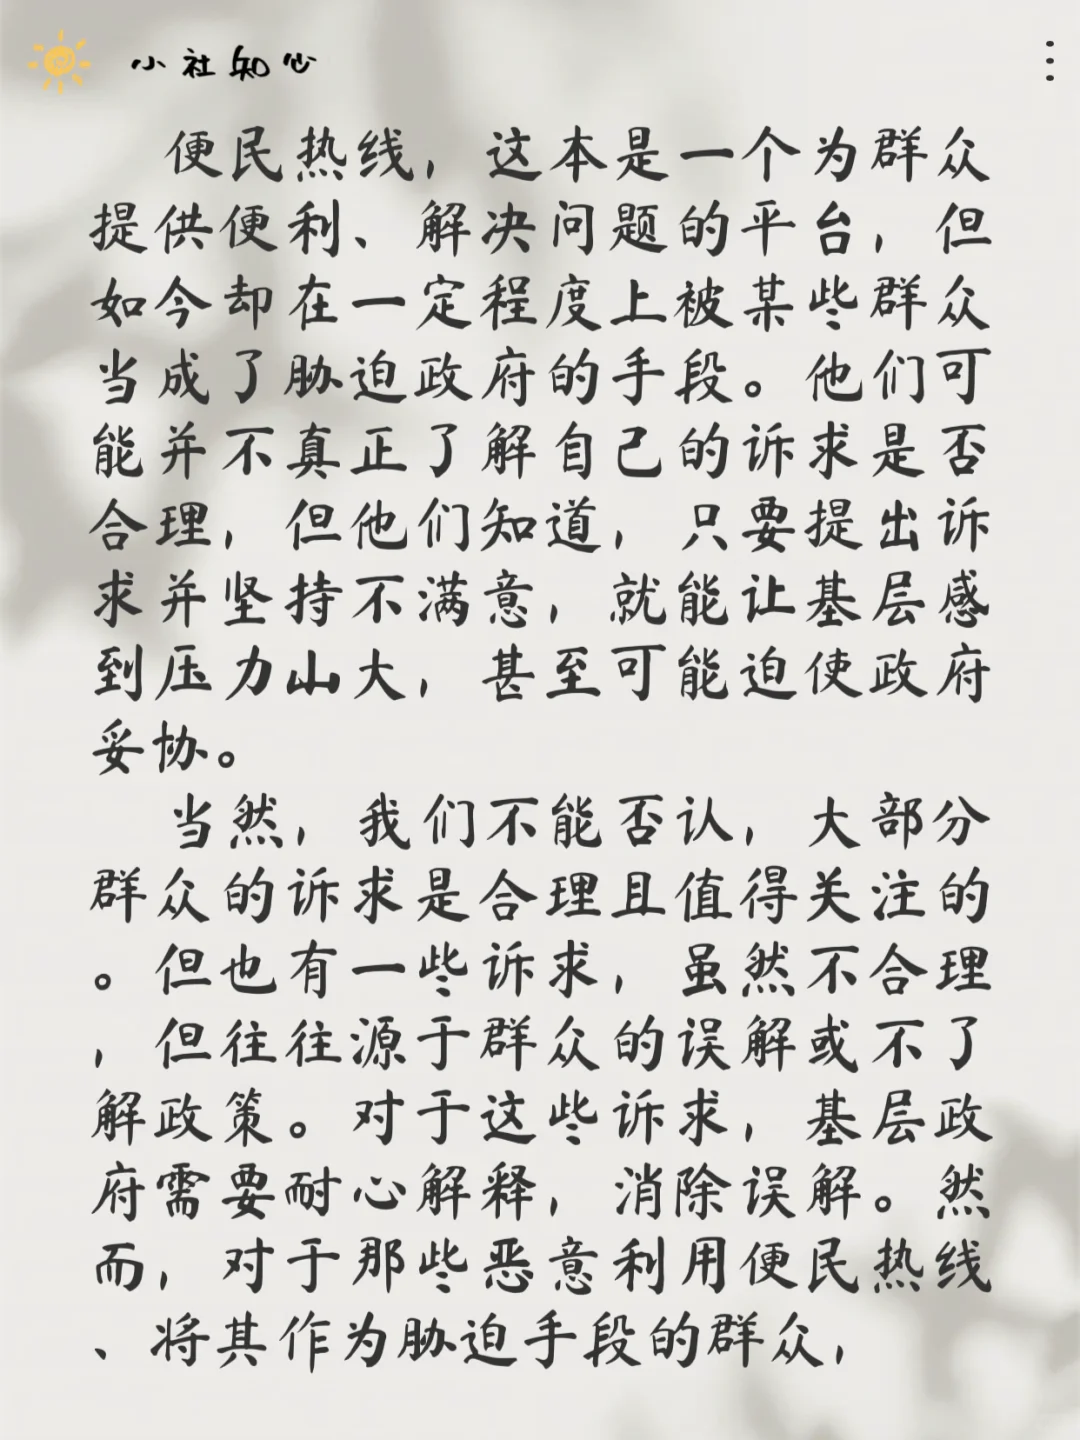 小社知心
便民热线，这本是一个为群众
提供便利、解决问题的平台，但
如今却在一定程度上被某些群众
当成了胁迫政府的手段。他们可
能并不真正了解自己的诉求是否
合理，但他们知道，只要提出诉
求并坚持不满意，就能让基层感
到压力山大，甚至可能迫使政府
妥协。
当然，我们不能否认，大部分
群众的诉求是合理且值得关注的
。但也有一些诉求，虽然不合理
，但往往源于群众的误解或不了
解政策。对于这些诉求，基层政
府需要耐心解释，消除误解。然
而，对于那些恶意利用便民热线
、将其作为胁迫手段的群众，